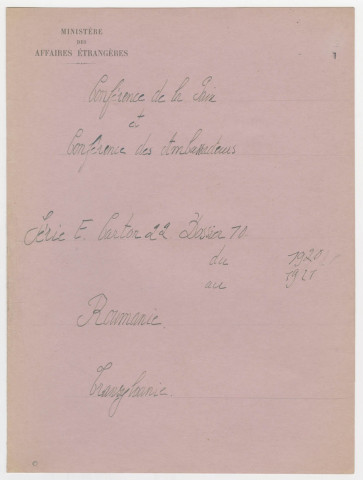 MINISTÈRE
DES
AFFAIRES ÉTRANGÈRES
Conférence de la Paix
et
Conférence des Ambassadeurs
Série E. Carton 22 Dossier 10
du 1920
au 1921
Roumanie.
Transylvanie